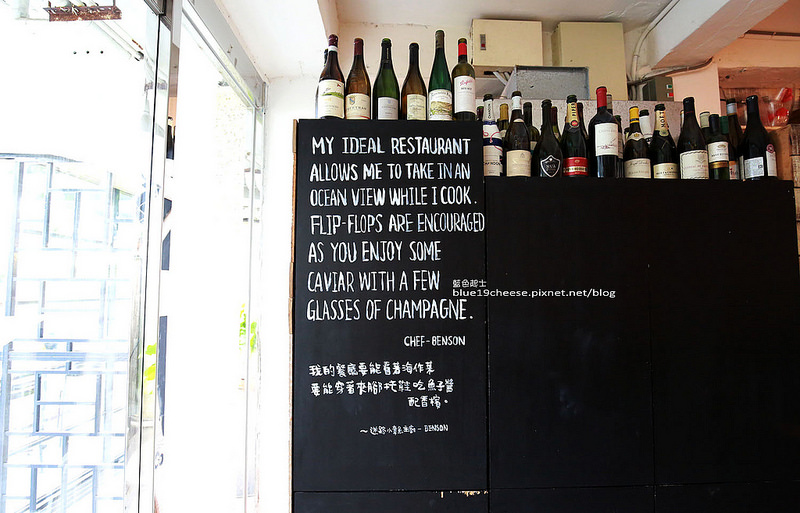 MY IDEAL RESTAURANT
ALLOWS ME TO TAKE IN AN
OCEAN VIEW WHILE I COOK.
FLIP-FLOPS ARE ENCOURAGED
AS YOU ENJOY SOME
CAVIAR WITH A FEW
GLASSES OF CHAMPAGNE.
CHEF-BENSON
我的餐廳要能看著海作菜
要能穿著夾腳拖鞋吃魚子醬
配香檳。
~迷路小章魚 - BENSON
藍色起士
blue19cheese.pixnet.net/blog